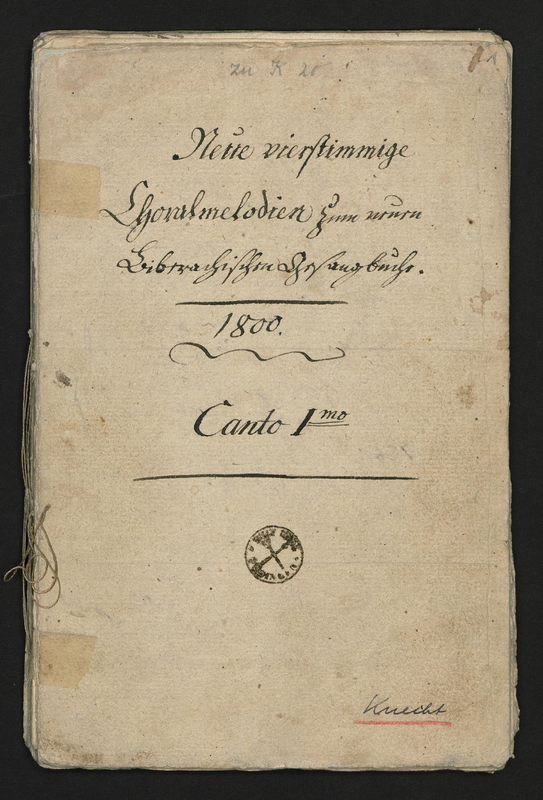 zu K 20
Neue vierstimmige
Choralmelodien zum neuen
Biberachischen Gesangbuche.
1800.
Canto 1mo
Knecht